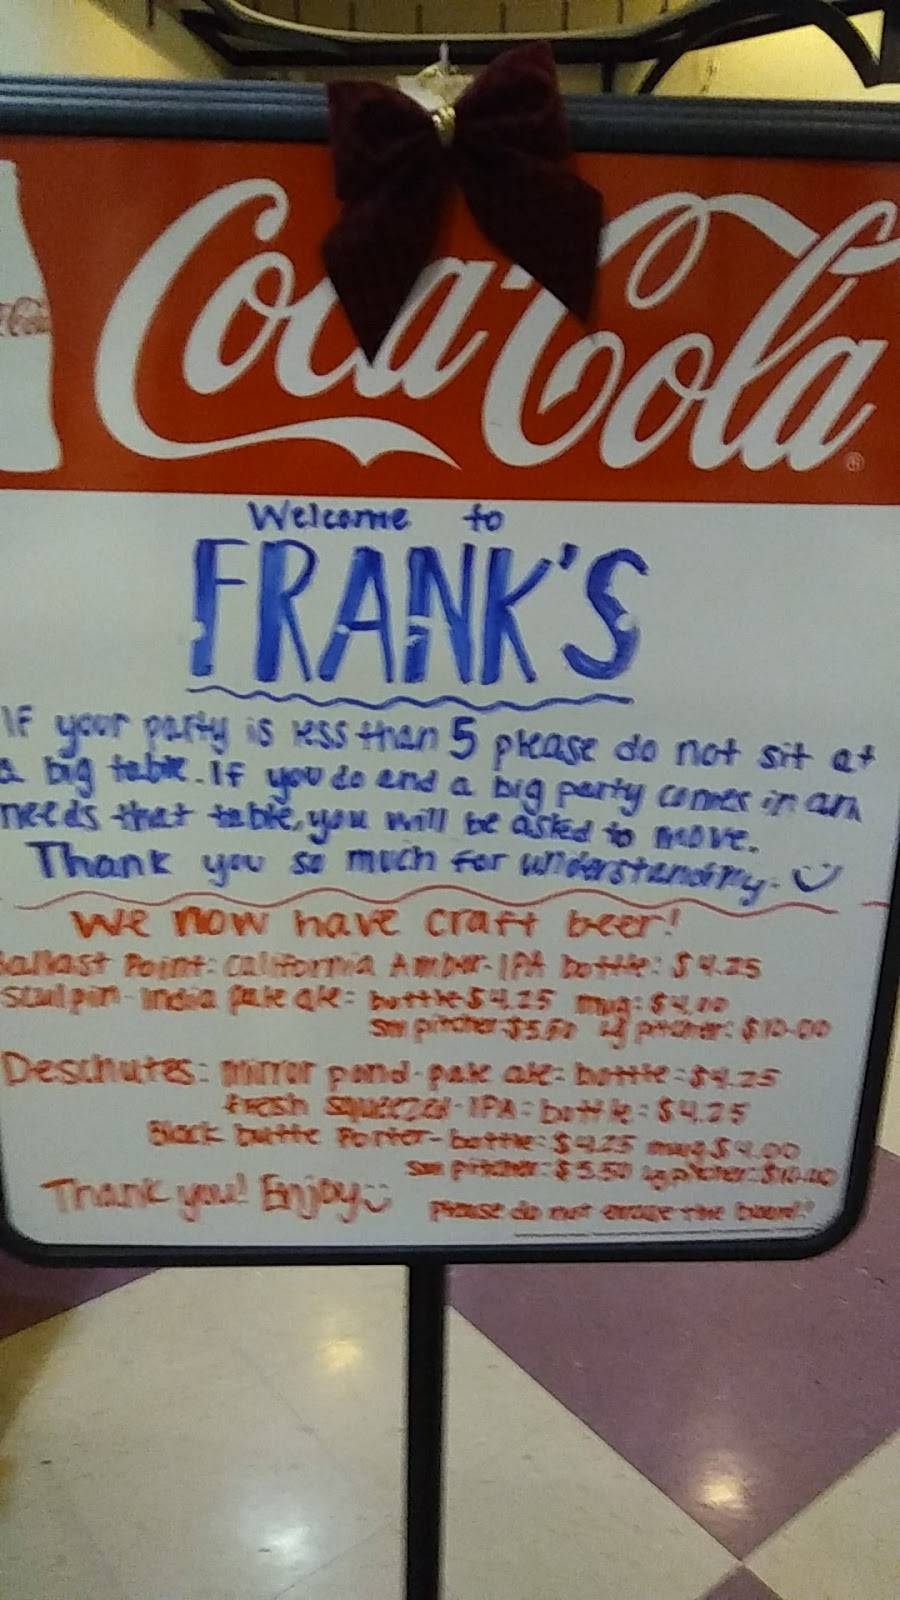 Coca-Cola
Welcome to
FRANK'S
If your party is less than 5 please do not sit at
a big table. If you do and a big party comes in and
needs that table, you will be asked to move.
Thank you so much for understanding.
We now have craft beer!
Ballast Point: California Amber-IPA bottle: $4.25
Sculpin-India pale ale: bottle $4.25 mug: $4.00
sm pitcher: $5.50 lg pitcher: $10.00
Deschutes: mirror pond-pale ale: bottle: $4.25
fresh squeezed-IPA: bottle: $4.25
Black butte Porter-bottle: $4.25 mug $4.00
sm pitcher: $5.50 lg pitcher: $10.00
Thank you! Enjoy
Please do not erase the board!